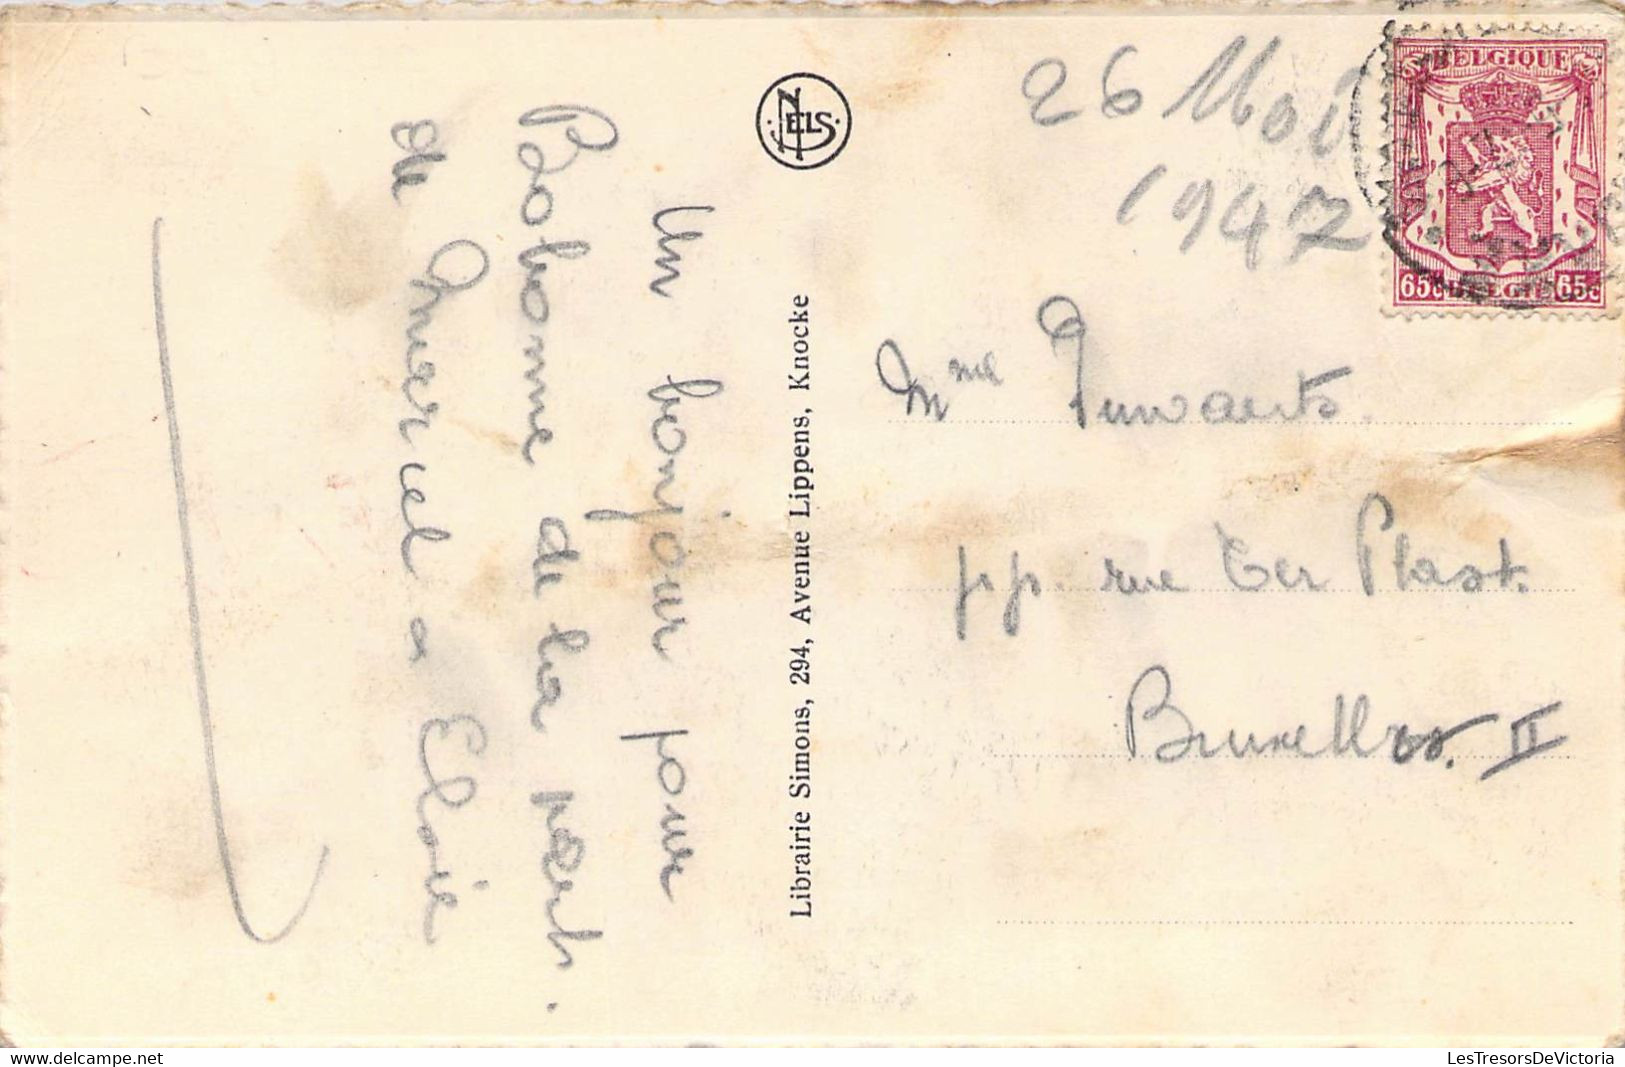 Un bonjour pour
Bobonne de la part.
de Marcel a Eloïe
NELS
Librairie Simons, 294, Avenue Lippens, Knocke
26 Mai
1947
BELGIQUE
65c BELGIË 65c
Mme
rue Ter Plast.
Bruxelles. II
LesTresorsDeVictoria
delcampe.net